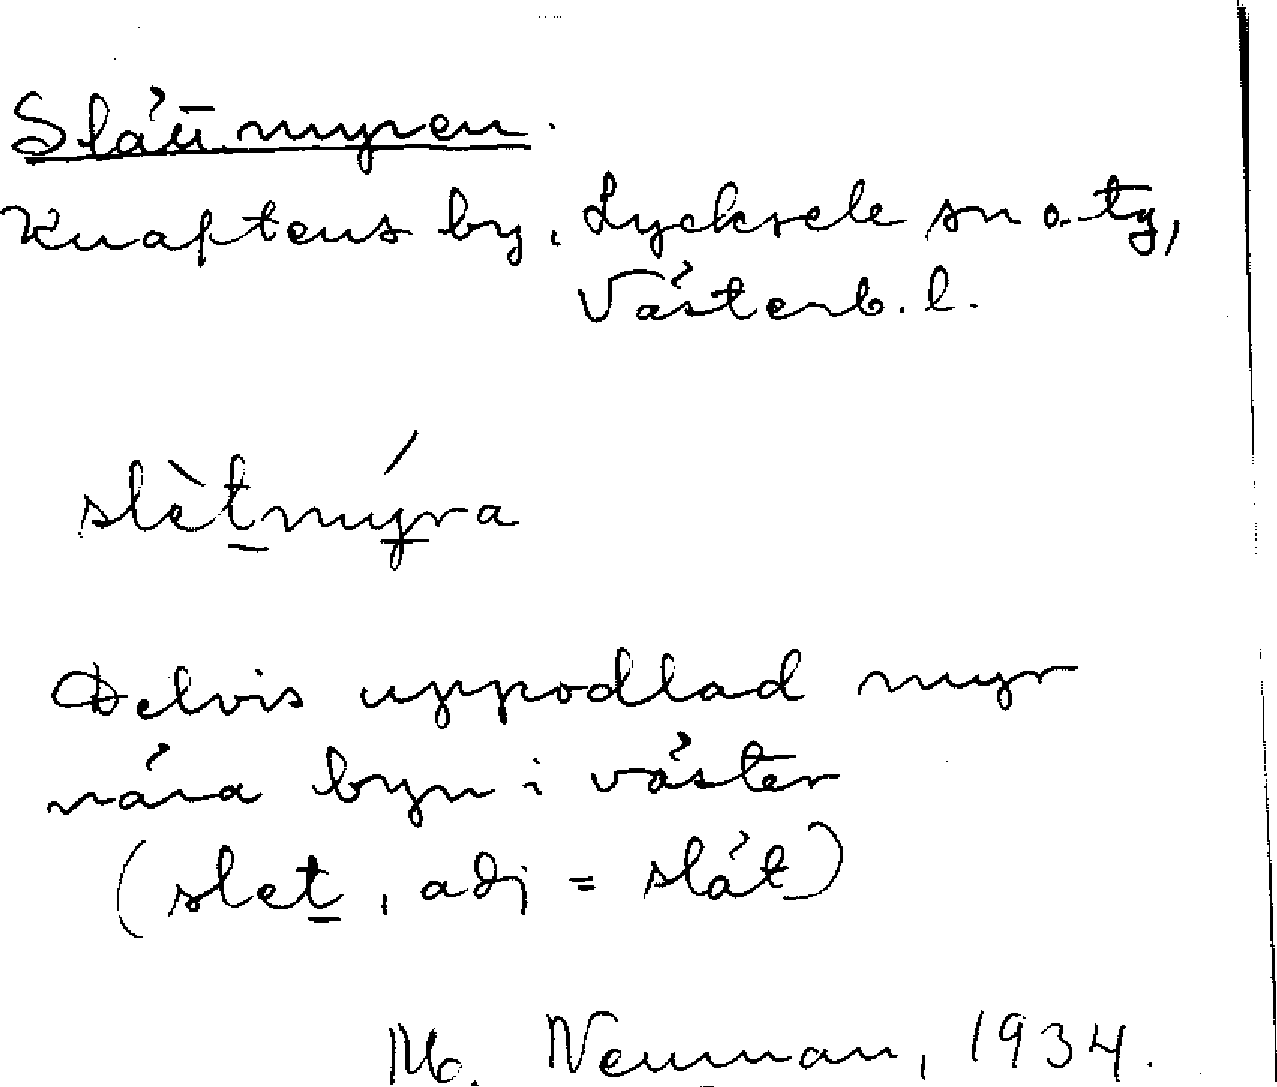 Slättmyren.
Knaftens by, Lycksele sn o. tg,
Västerb. l.
slètmýra
Delvis uppodlad myr
nära byn i väster
(slet, adj = slät)
M. Neuman, 1934.